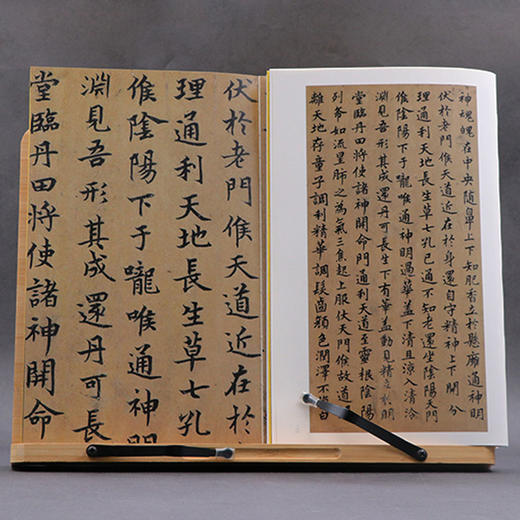 伏於老門候天道近在於
理通利天地長生草七孔
候陰陽下于嚨喉通神明
淵見吾形其成還丹可長
堂臨丹田將使諸神開命
神魂魄在中央隨鼻上下知肥香立於懸廱通神明
伏於老門候天道近在於身還自守精神上下開分
理通利天地長生草七孔已通不知老還坐陰陽天門
候陰陽下于嚨喉通神明過華蓋下清且涼入清泠
淵見吾形其成還丹可長生下有華蓋動見精立於明
堂臨丹田將使諸神開命門通利天道至靈根陰陽
列布如流星肺之為氣三焦起上服伏天門候故道
離天地存童子調利精華調髮齒顏色潤澤不復白